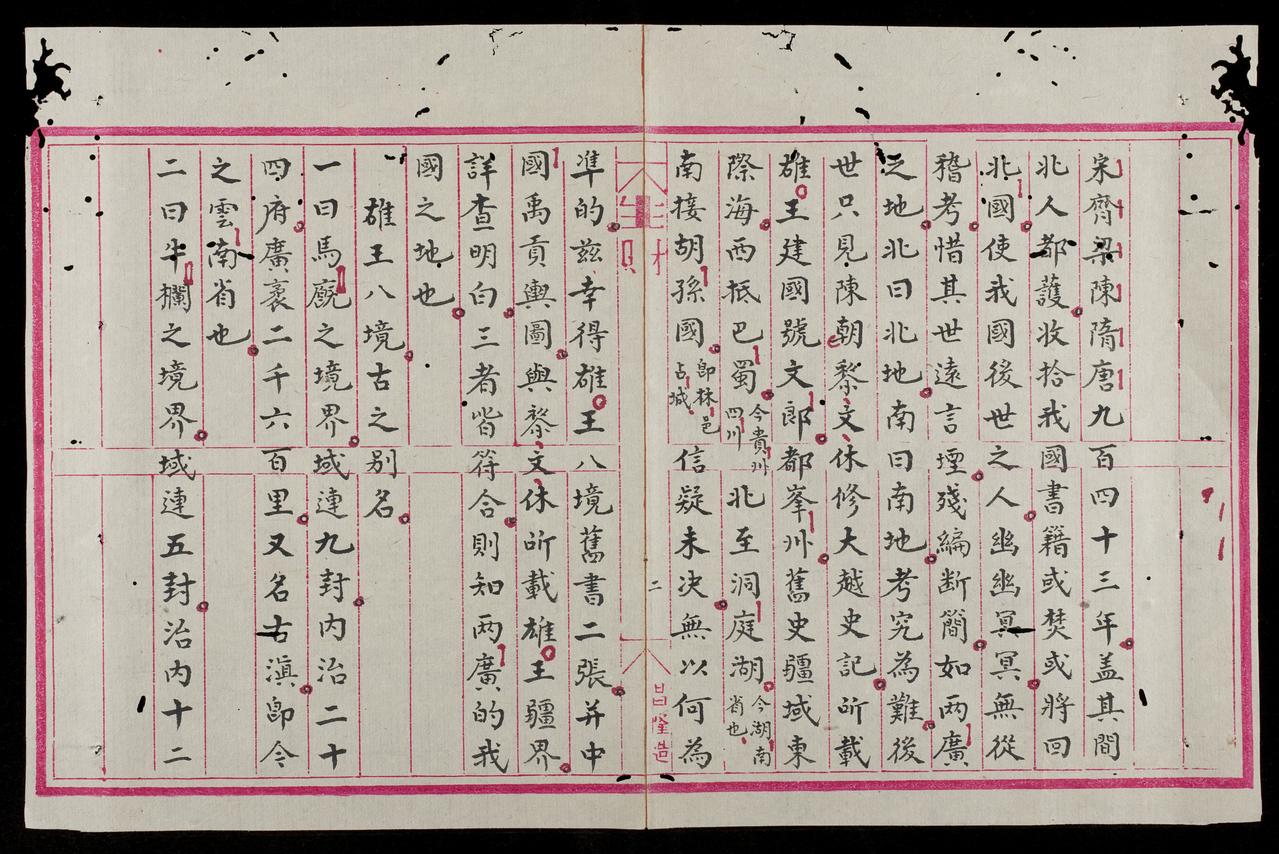 宋齊梁陳隋唐九百四十三年盖其間
北人都護收拾我國書籍或焚或將回
北國使我國後世之人幽幽冥冥無從
稽考惜其世遠言堙殘編断簡如兩廣
之地北曰北地南曰南地考究為難後
世只見陳朝黎文休修大越史記所載
雄王建國號文郎都峯州舊史疆域東
際海西抵巴蜀今貴州四川北至洞庭湖今湖南省也
南接胡孫國即林邑占城信疑未决無以何為
二
昌隆造
準的兹幸得雄王八境舊書二張并中
國禹貢輿圖與黎文休所載雄王疆界
詳查明白三者皆符合則知兩廣的我
國之地也
雄王八境古之别名
一曰馬廐之境界域連九封内治二十
四府廣袤二千六百里又名古滇即今
之雲南省也
二曰牛欄之境界域連五封治内十二